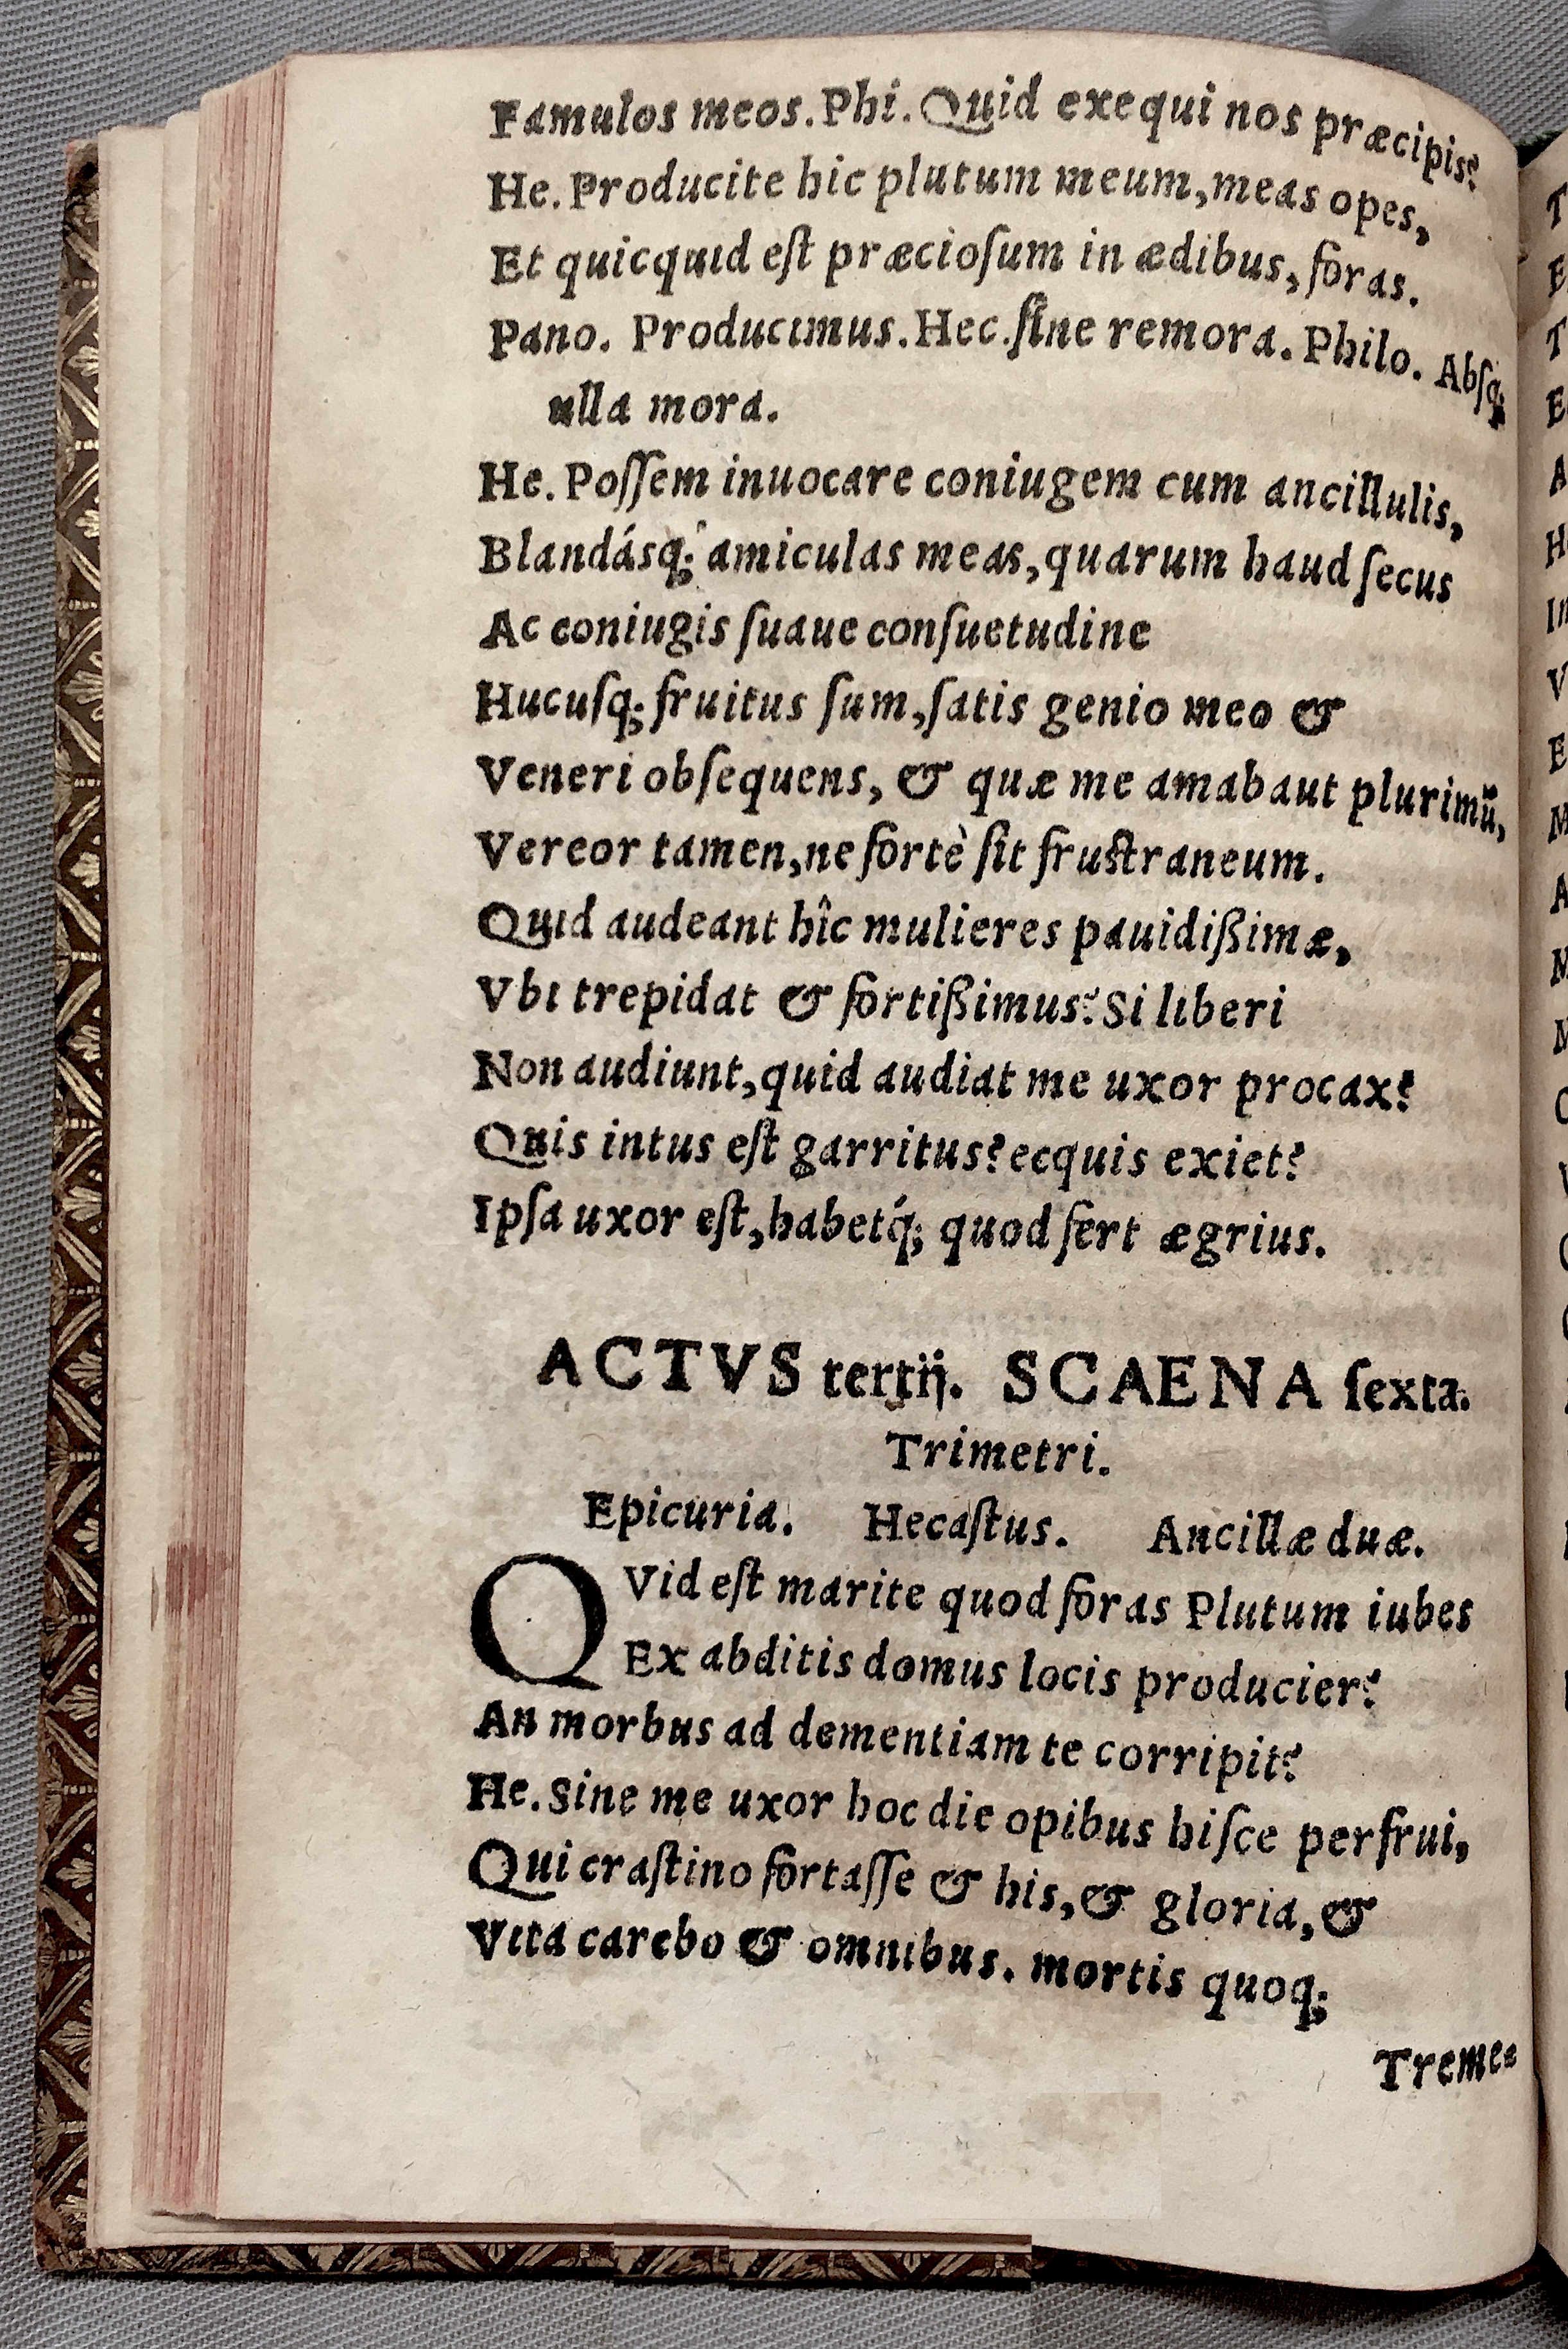 Famulos meos. Phi. Quid exequi nos præcipis?
He. Producite hic plutum meum, meas opes,
Et quicquid eſt præcioſum in ædibus, foras.
Pano. Producimus. Hec. ſine remora. Philo. Abſq;
ulla mora.
He. Poſſem inuocare coniugem cum ancillulis,
Blandásq; amiculas meas, quarum haud ſecus
Ac coniugis ſuaue conſuetudine
Hucuſq; fruitus ſum, ſatis genio meo &
Veneri obſequens, & quæ me amabaut plurimũ,
Vereor tamen, ne fortè ſit fruſtraneum.
Quid audeant hîc mulieres pauidißimæ,
Vbi trepidat & fortißimus? Si liberi
Non audiunt, quid audiat me uxor procax?
Quis intus eſt garritus? ecquis exiet?
Ipſa uxor eſt, habetq́; quod fert ægrius.
ACTVS tertij. SCAENA ſexta.
Trimetri.
Epicuria. Hecaſtus. Ancillæ duæ.
QVid eſt marite quod foras Plutum iubes
Ex abditis domus locis producier?
An morbus ad dementiam te corripit?
He. Sine me uxor hoc die opibus hiſce perfrui,
Qui craſtino fortaſſe & his, & gloria, &
Vita carebo & omnibus. mortis quoq;
Treme=
T
E
T
E
A
H
In
V
E
M
A
M
M